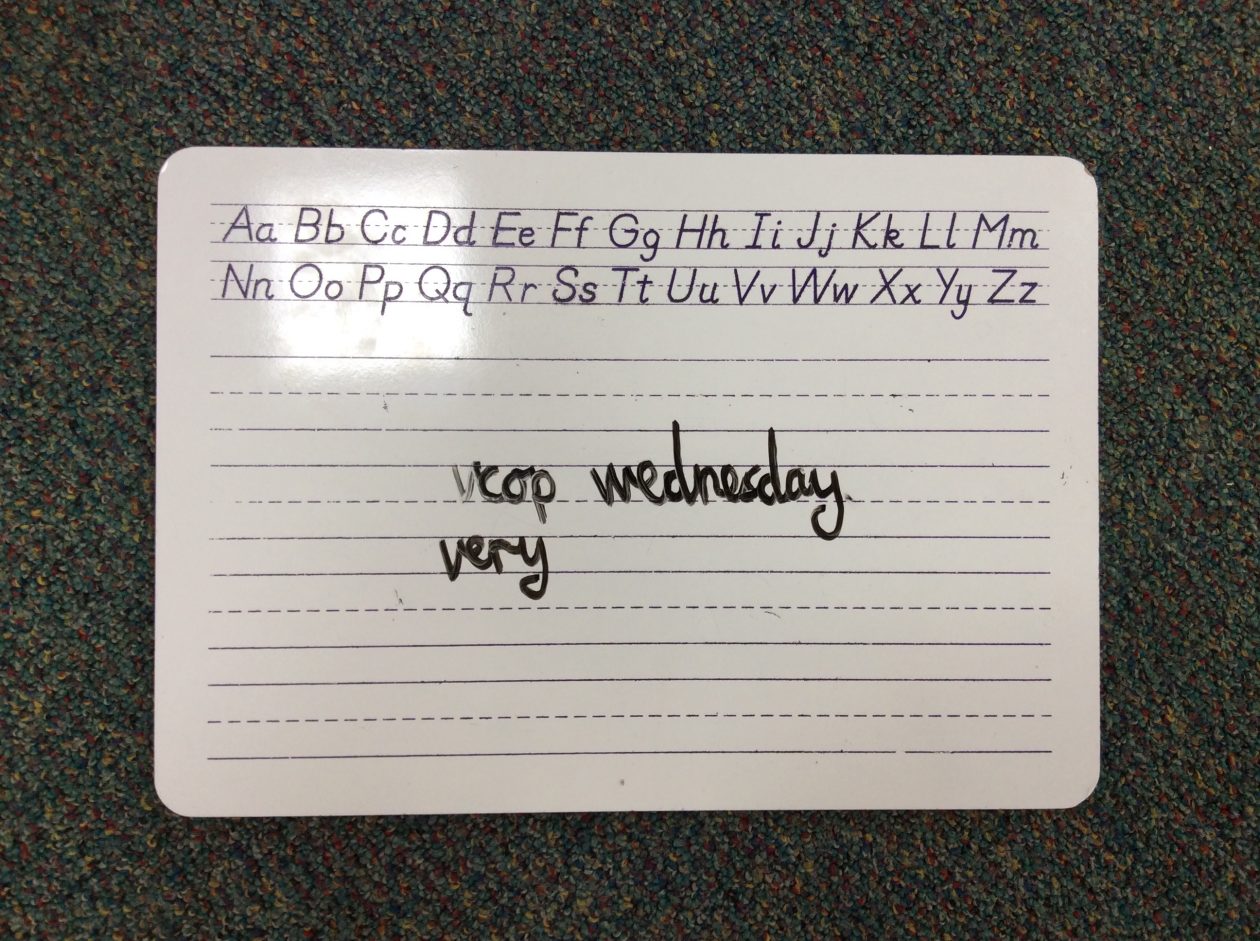 Aa Bb Cc Dd Ee Ff Gg Hh Ii Jj Kk Ll Mm
Nn Oo Pp Qq Rr Ss Tt Uu Vv Ww Xx Yy Zz
vcop wednesday
very